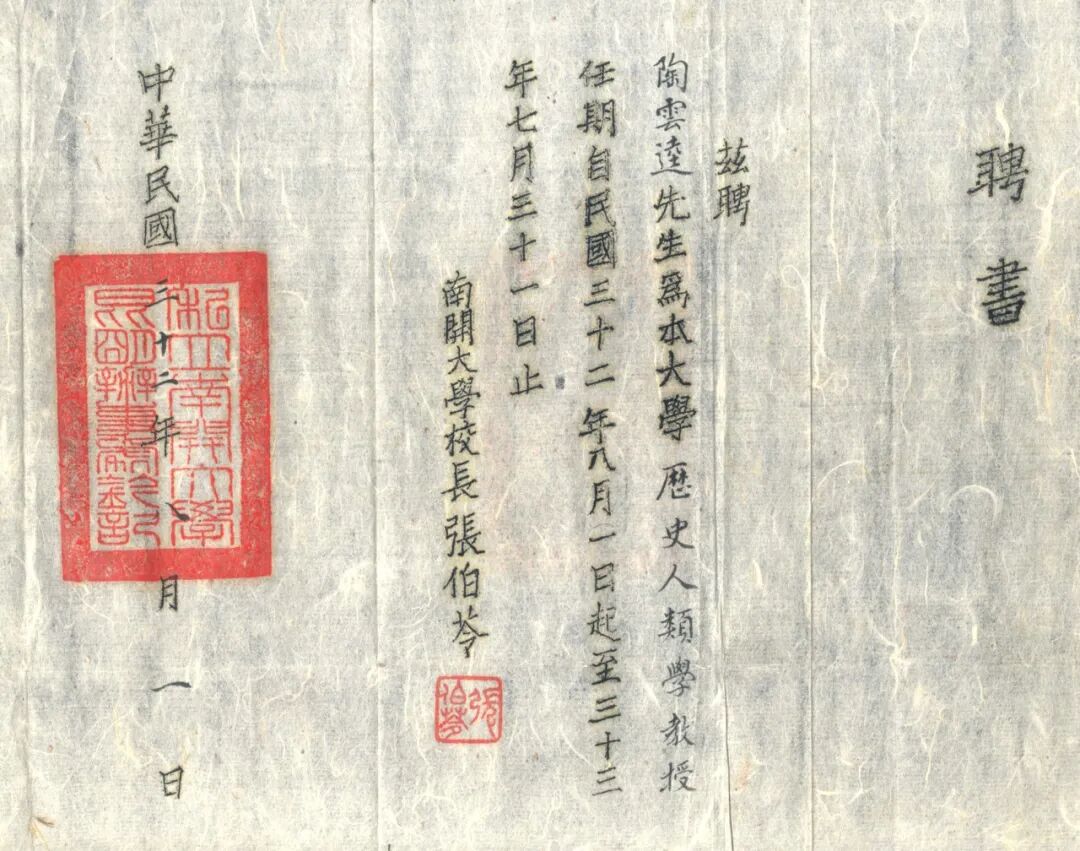 聘書
茲聘
陶雲逵先生爲本大學歷史人類學教授
任期自民國三十二年八月一日起至三十三
年七月三十一日止
南開大學校長張伯苓
張伯苓
中華民國三十二年八月一日
私立南開大學